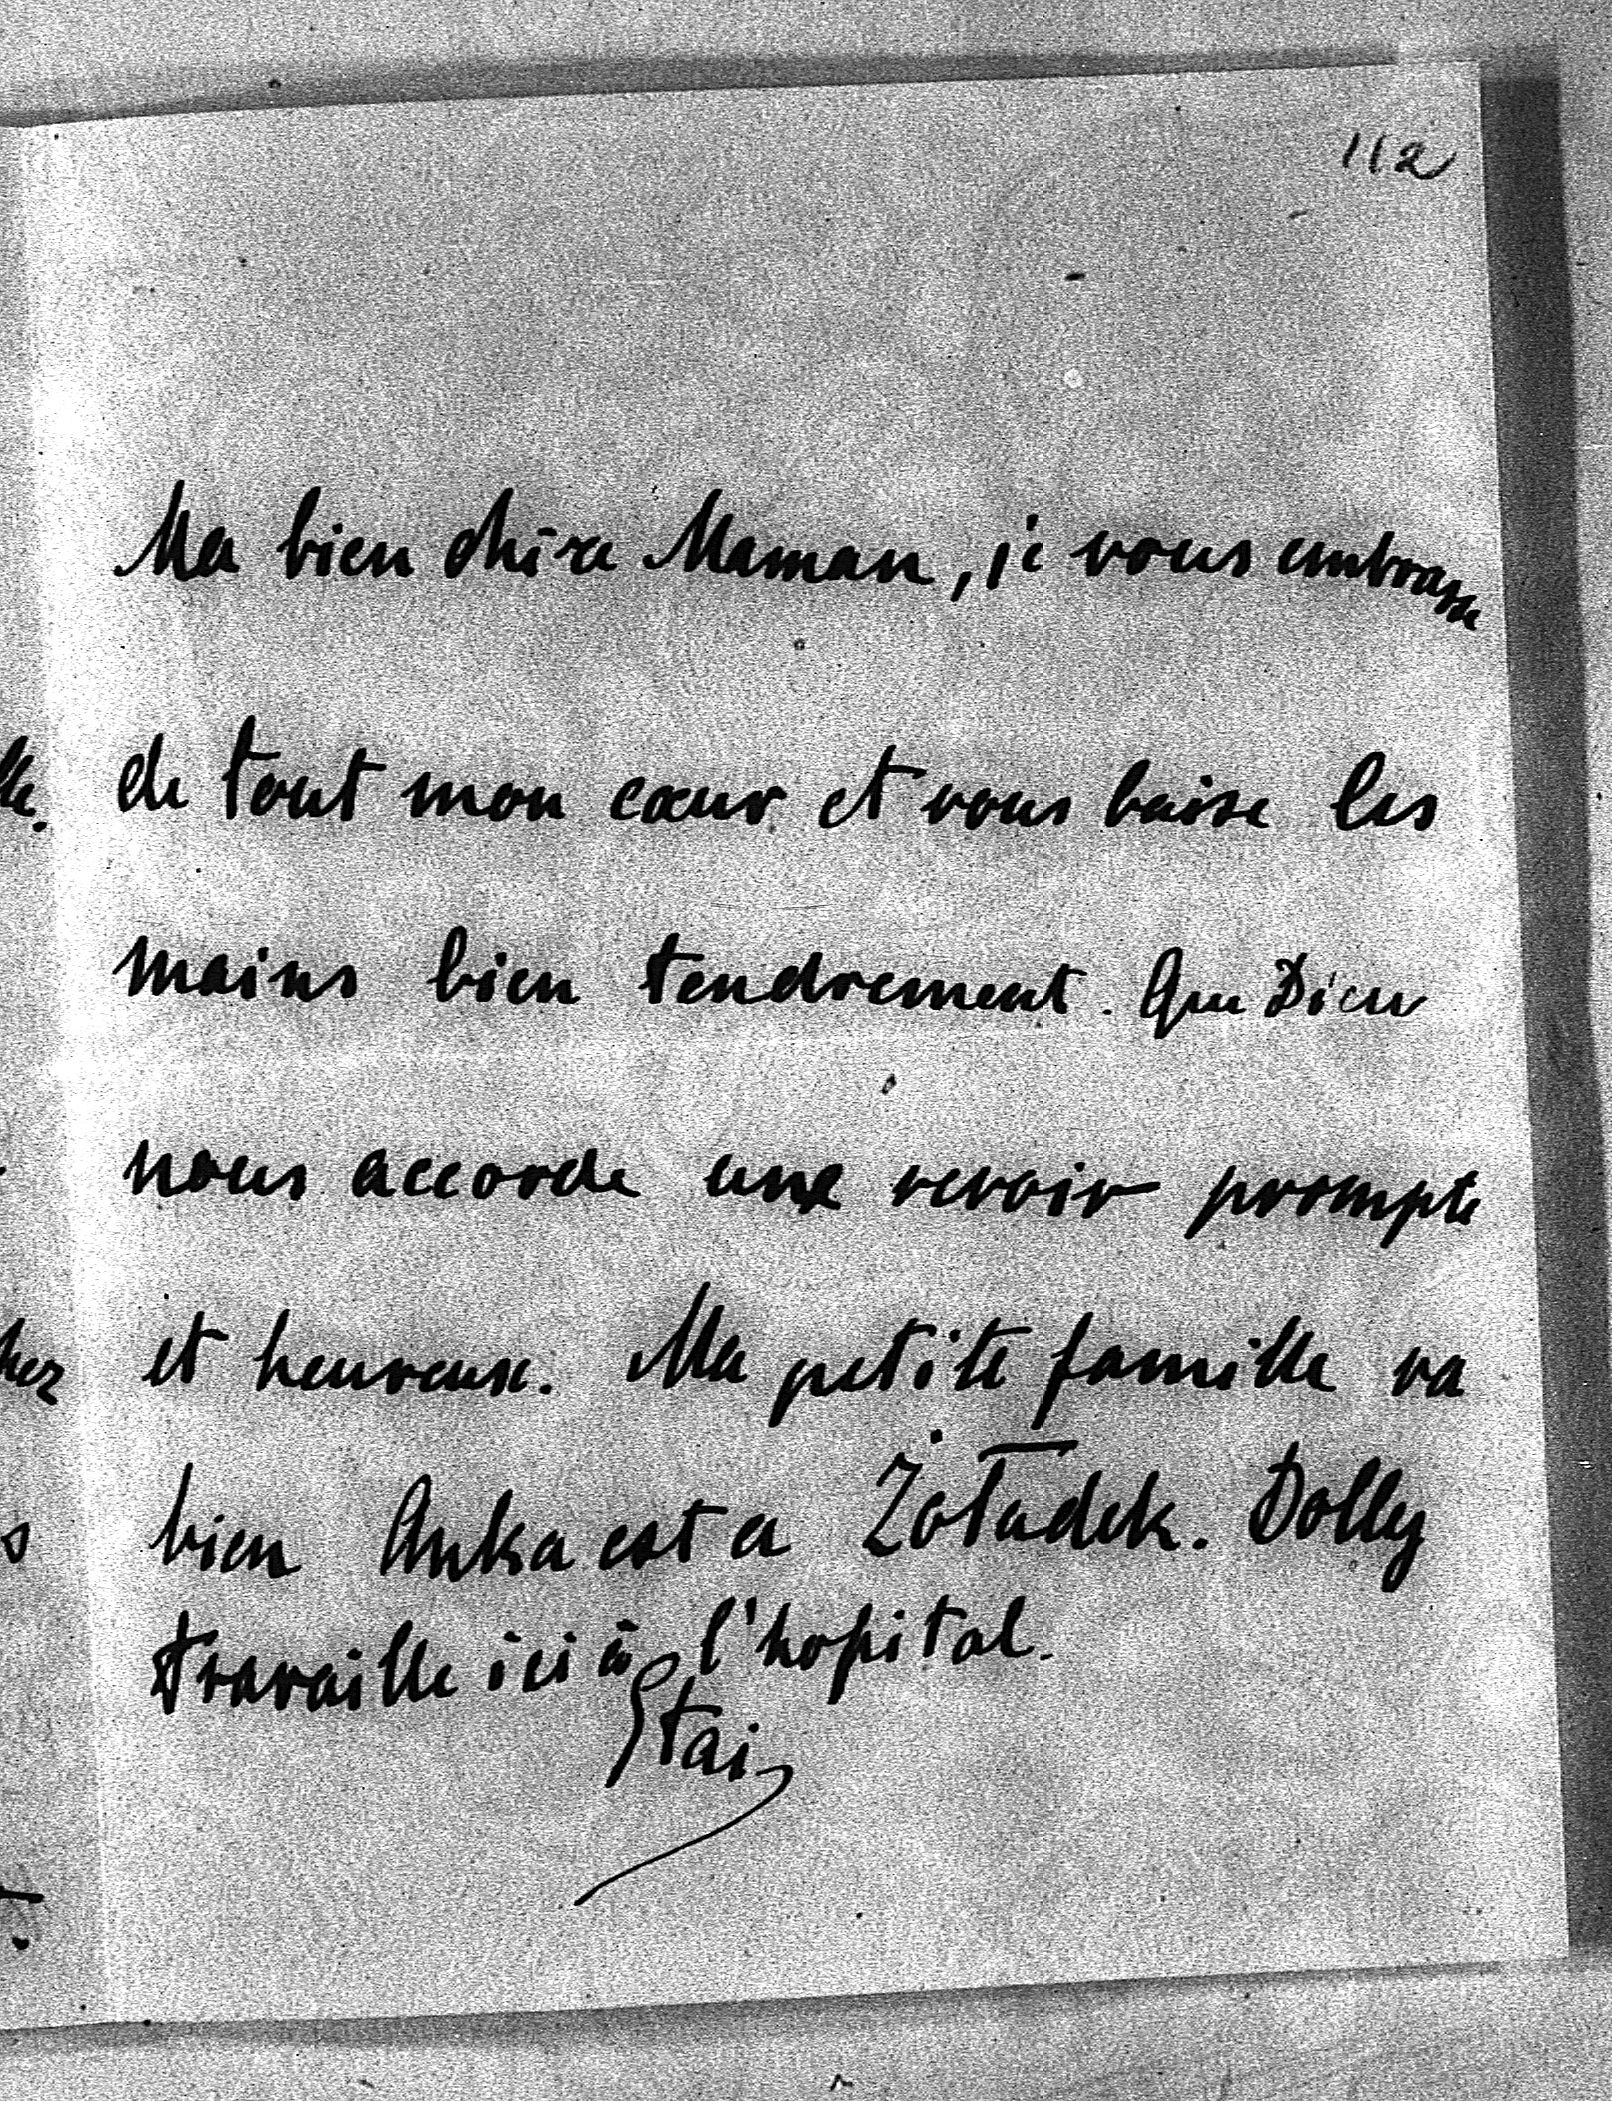 112
Ma bien chère Maman, je vous embrasse
de tout mon cœur et vous baise les
mains bien tendrement. Que Dieu
nous accorde une revoir prompte
et heureuse. Ma petite famille va
bien Anka est a Żoładek. Dolly
travaille ici à l'hopital.
Stas